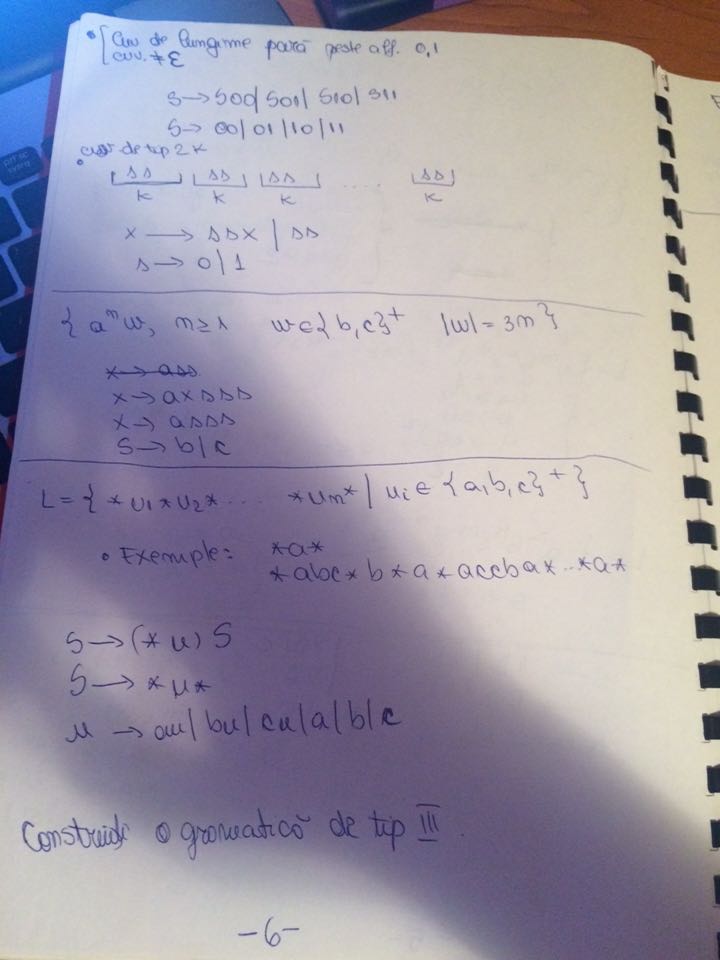 • [ Cuv de lungime pară peste alf. 0,1
cuv. ≠ ε
S → S00| S01| S10| S11
S → 00| 01| 10| 11
• cuv de tip 2K
ss ss ss .... ss
K K K K
x → ssx | ss
s → 0|1
{ aⁿw, n≥1 w∈{b,c}⁺ |w|=3n }
x → ass
x → axsss
x → asss
S → b|c
L = { *u₁*u₂* .... *uₙ* | uᵢ ∈ {a,b,c}⁺ }
• Exemple: *a*
*abc*b*a*accba*..*a*
S → (*u) S
S → *u*
u → au| bu| cu| a| b| c
Construiți o gramatică de tip III.
-6-